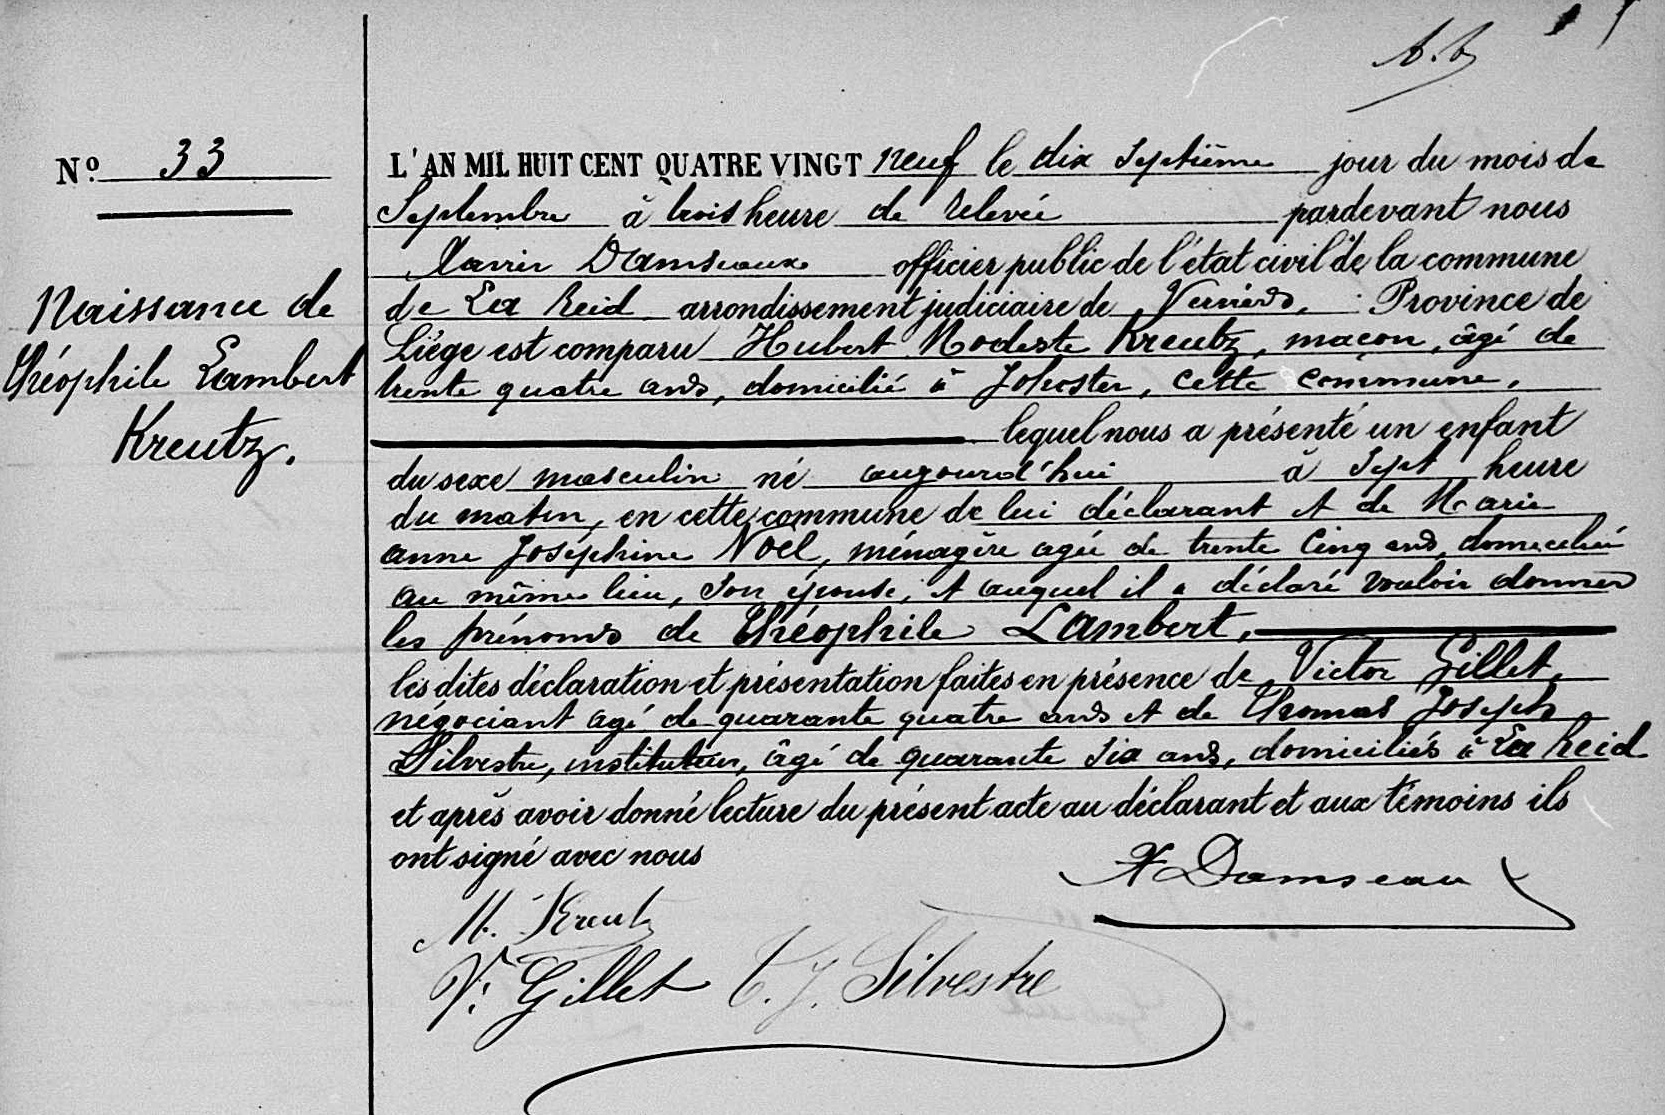 A.B
Nº 33
Naissance de
Théophile Lambert
Kreutz.
L'AN MIL HUIT CENT QUATRE VINGT neuf le dix septième jour du mois de
Septembre à trois heure de relevée pardevant nous
Xavier Damseaux officier public de l'état civil de la commune
de La Reid arrondissement judiciaire de Verviers, Province de
Liège est comparu Hubert Modeste Kreutz, maçon, âgé de
trente quatre ans, domicilié à Jehoster, cette commune,
lequel nous a présenté un enfant
du sexe masculin né aujourd'hui à sept heure
du matin, en cette commune de lui déclarant et de Marie
anne Joséphine Noel, ménagère agée de trente cinq ans, domiciliée
au même lieu, son épouse, et auquel il a déclaré vouloir donner
les prénoms de Théophile Lambert,
les dites déclaration et présentation faites en présence de Victor Gillet,
négociant agé de quarante quatre ans et de Thomas Joseph
Silvestre, instituteur, âgé de quarante six ans, domiciliés à La Reid
et après avoir donné lecture du présent acte au déclarant et aux témoins ils
ont signé avec nous
X Damseau
M. Kreutz
V. Gillet T. J. Silvestre